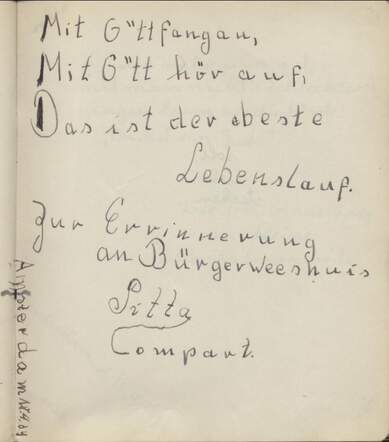 Mit G"ttfangan,
Mit G"tt hör auf,
Das ist der beste
Lebenslauf.
Zur Errinnerung
an Bürgerweeshuis
Pitta
Compart.
Amsterdam